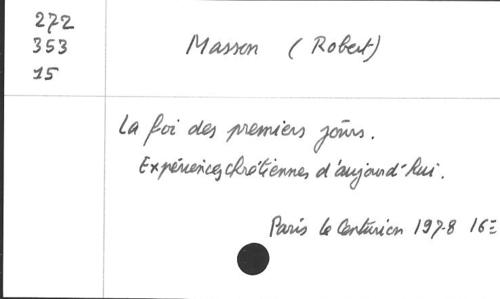 272
353
15
Masson (Robert)
La foi des premiers jours.
Expériences chrétiennes d'aujourd'hui.
Paris le Centurion 1978 16=